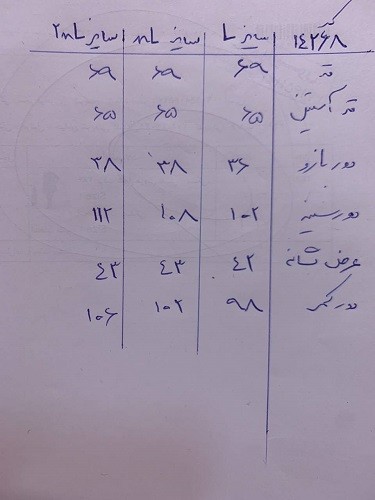 کد
۱۴۲۶۸ سایز L سایز xL سایز ۲xL
قد ۶۹ ۶۹ ۶۹
قد آستین ۶۵ ۶۵ ۶۵
دور بازو ۳۶ ۳۸ ۳۸
دور سینه ۱۰۲ ۱۰۸ ۱۱۲
عرض شانه ۴۲ ۴۳ ۴۳
دور کمر ۹۸ ۱۰۲ ۱۰۶